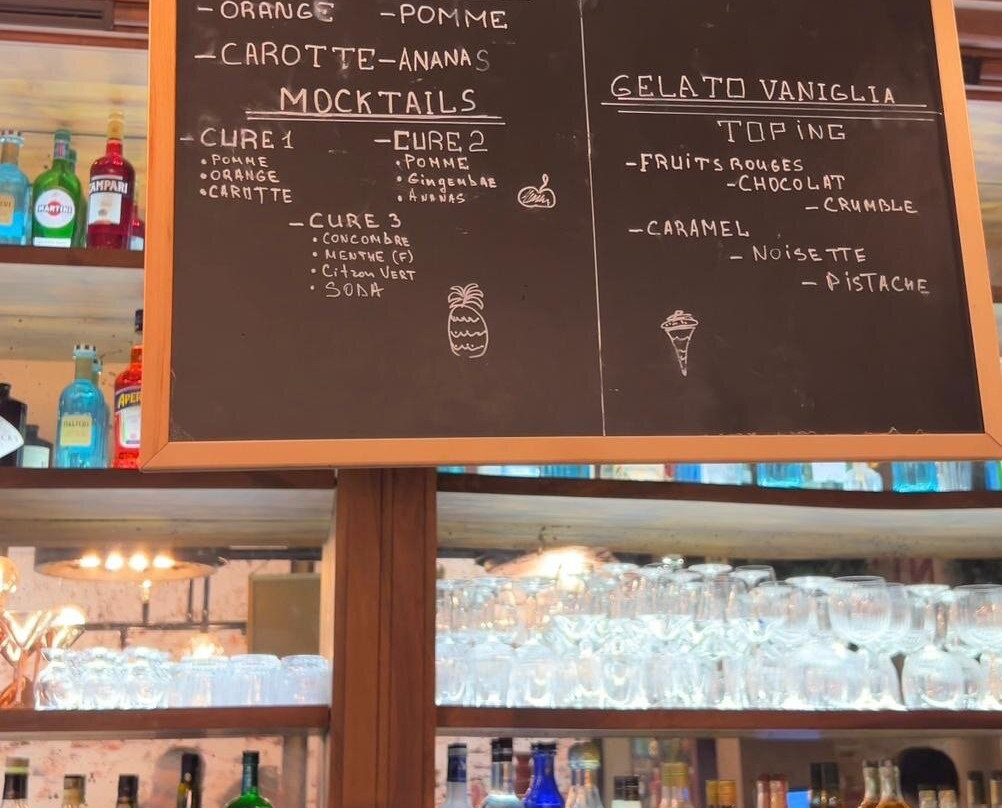 -ORANGE -POMME
-CAROTTE-ANANAS
MOCKTAILS
-CURE 1
• POMME
• ORANGE
• CAROTTE
-CURE 2
• POMME
• GingemBRE
• ANANAS
-CURE 3
• CONCOMBRE
• MENTHE (F)
• Citron VERT
• SODA
GELATO VANIGLIA
TOPiNG
-FRUITS ROUGES
-CHOCOLAT
-CRUMBLE
-CARAMEL
- NOiSETTE
- PiSTACHE
CAMPARI
MARTINI
APER